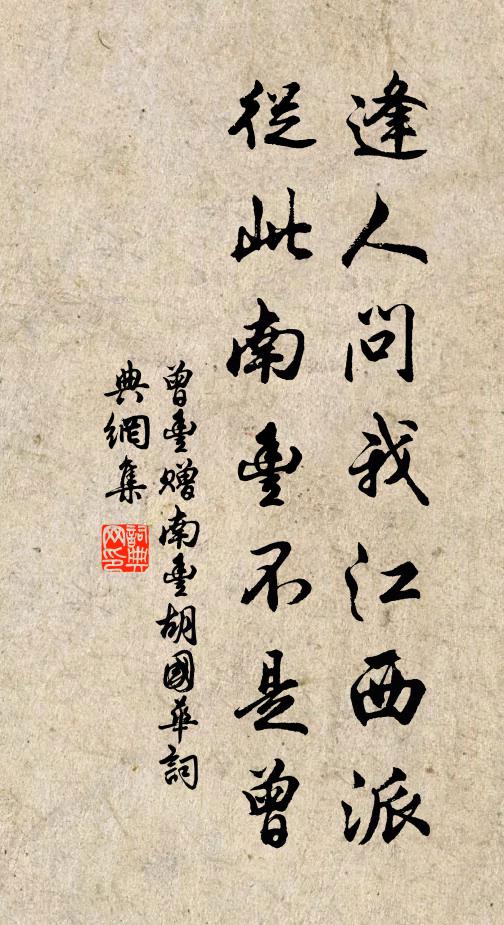 逢人問我江西派
從此南豊不是曾
曾豊贈南豊胡國華詞
典網集
詞典網印